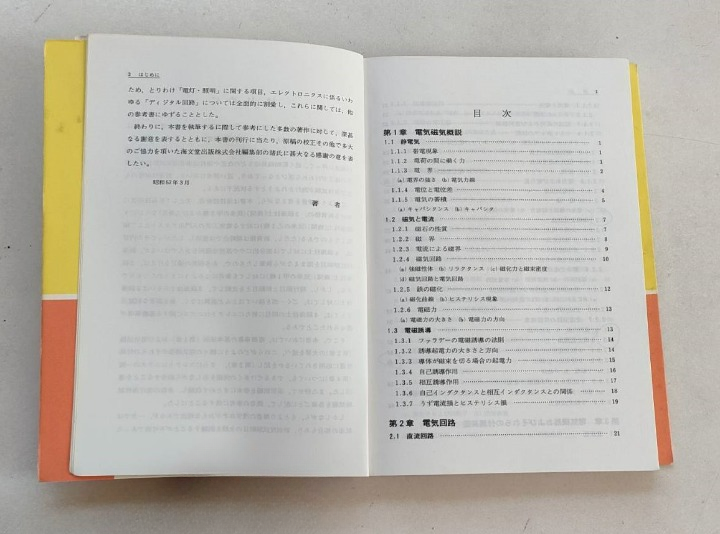 2 はじめに
ため，とりわけ「電灯・照明」に関する項目，エレクトロニクスに係るいわ
ゆる「ディジタル回路」については全面的に割愛し，これらに関しては，他
の参考書にゆずることとした。
終わりに，本書を執筆するに際して参考にした多数の著作に対して，深甚
なる謝意を表するとともに，本書の刊行に当たり，原稿の校正その他で多大
のご協力を頂いた海文堂出版株式会社編集部の諸氏に甚大なる感謝の意を表
したい。
昭和61年3月
著 者
目 次
第1章 電気磁気概説
1.1 静電気 1
1.1.1 帯電現象 1
1.1.2 電荷の間に働く力 1
1.1.3 電 界 2
(a) 電界の強さ (b) 電気力線
1.1.4 電位と電位差 4
1.1.5 電気の蓄積 5
(a) キャパシタンス (b) キャパシタ
1.2 磁気と電流 7
1.2.1 磁石の性質 7
1.2.2 磁 界 8
1.2.3 電流による磁界 9
1.2.4 磁気回路 10
(a) 強磁性体 (b) リラクタンス (c) 磁化力と磁束密度
(d) 磁気回路と電気回路
1.2.5 鉄の磁化 12
(a) 磁化曲線 (b) ヒステリシス現象
1.2.6 電磁力 13
(a) 電磁力の大きさ (b) 電磁力の方向
1.3 電磁誘導 13
1.3.1 ファラデーの電磁誘導の法則 14
1.3.2 誘導起電力の大きさと方向 14
1.3.3 導体が磁束を切る場合の起電力 14
1.3.4 自己誘導作用 16
1.3.5 相互誘導作用 17
1.3.6 自己インダクタンスと相互インダクタンスとの関係 18
1.3.7 うず電流損とヒステリシス損 19
第2章 電気回路
2.1 直流回路 21